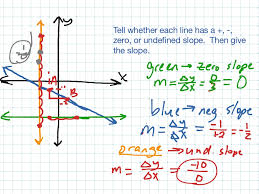 Tell whether each line has a +, -,
zero, or undefined slope. Then give
the slope.
y
x
A
B
green → zero slope
m = Δy/Δx = 0/3 = 0
blue → neg slope
m = Δy/Δx = -1/+2 = -1/2
orange → und. slope
m = Δy/Δx = -10/0